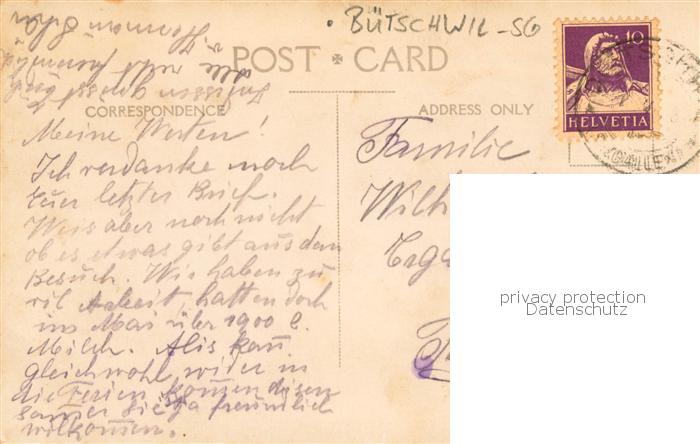 BÜTSCHWIL-SG
POST CARD
CORRESPONDENCE
ADDRESS ONLY
10
HELVETIA
Meine Werten!
Ich verdanke noch
Euer letzter Brief.
Weis aber noch nicht
ob es etwas gibt aus dem
Besuch. Wir haben zu
vil Arbeit, hatten doch
im Mai über 1900 l.
Milch. Alis kan
gleichwohl wider in
die Ferien kommen diesen
Sommer Sie ist ja freundlich
wilkommen.
Familie
Wilh
privacy protection
Datenschutz